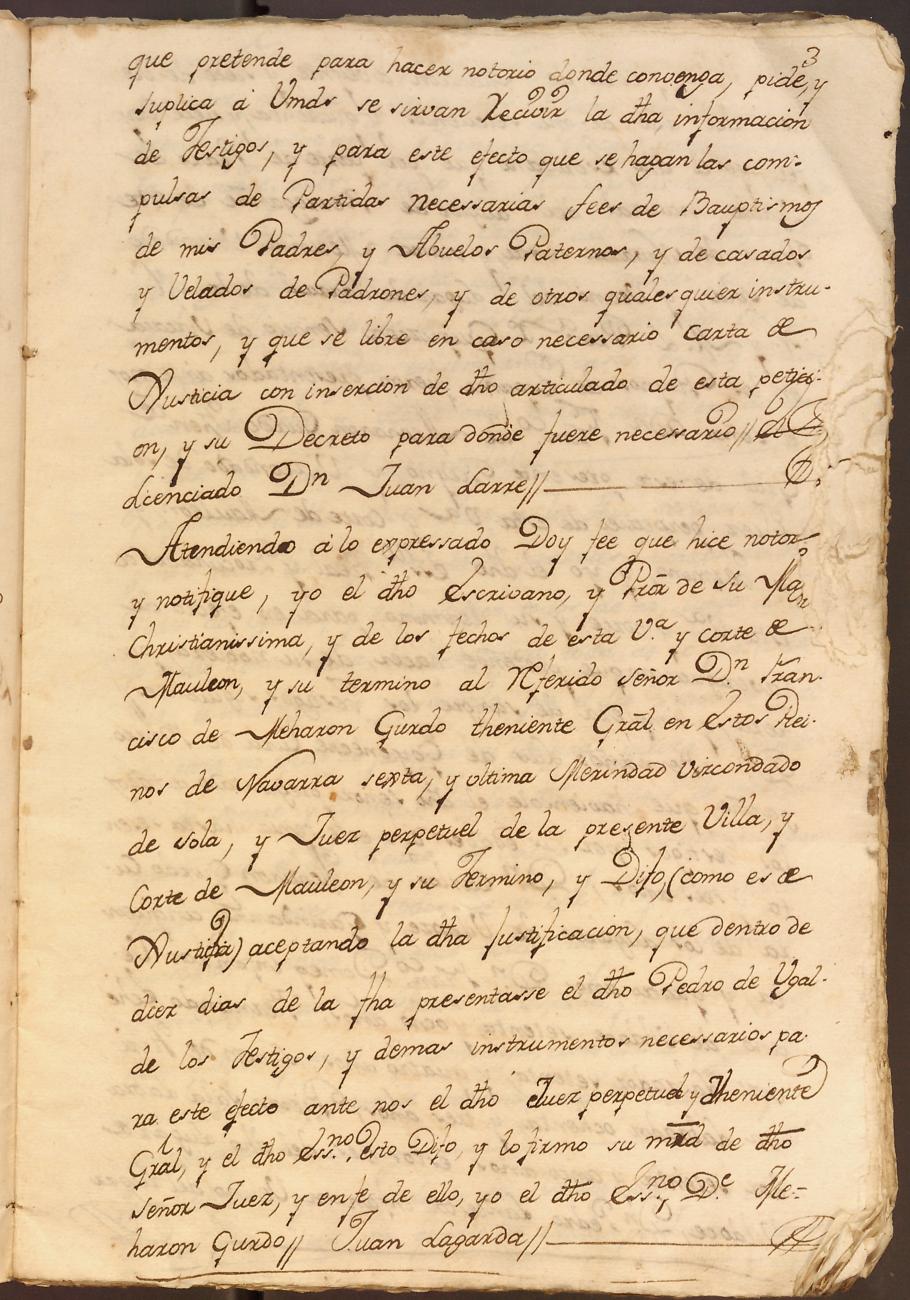 3
que pretende para hacer notorio donde convenga, pide, y
suplica à Vmds se sirvan Recivir la dha información
de Testigos, y para este efecto que se hagan las com-
pulsas de Partidas necessarias fees de Bauptismos
de mis Padres, y Abuelos Paternos, y de casados
y Velados de Padrones, y de otros qualesquier instru-
mentos, y que se libre en caso necessario carta de
Justicia con inserción de dho articulado de esta petizi-
on, y su Decreto para donde fuere necessario// el
Licenciado Dn Juan Larre//
Atendiendo à lo expressado Doy fee que hice notor
y notifique, yo el dho Escrivano, y Pror de su Mag
Christianissima, y de los fechos de esta V.a y corte de
Mauleon, y su termino al Referido señor D.n Fran-
cisco de Meharon Gurdo theniente Gral en Estos Rei-
nos de Navarra sexta, y ultima Merindad vizcondado
de Sola, y Juez perpetuel de la presente Villa, y
Corte de Mauleon, y su Termino, y Dijo, (como es de
Justicia) aceptando la dha Justificacion, que dentro de
diez dias de la fha presentasse el dho Pedro de Ugal-
de los Testigos, y demas instrumentos necessarios pa-
ra este efecto ante nos el dho Juez perpetuel y Theniente
Gral, y el dho Ess.no, esto Dijo, y lo firmo su mrd de dho
señor Juez, y en fe de ello, yo el dho Ess.no D.e Me-
haron Gurdo// Juan Lagarda//